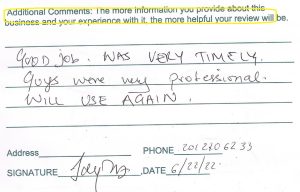 Additional Comments: The more information you provide about this
business and your experience with it, the more helpful your review will be.
GOOD job. WAS VERY TIMELY.
Guys were very professional.
WILL USE AGAIN.
Address
PHONE 2012106233
SIGNATURE DATE 6/22/22